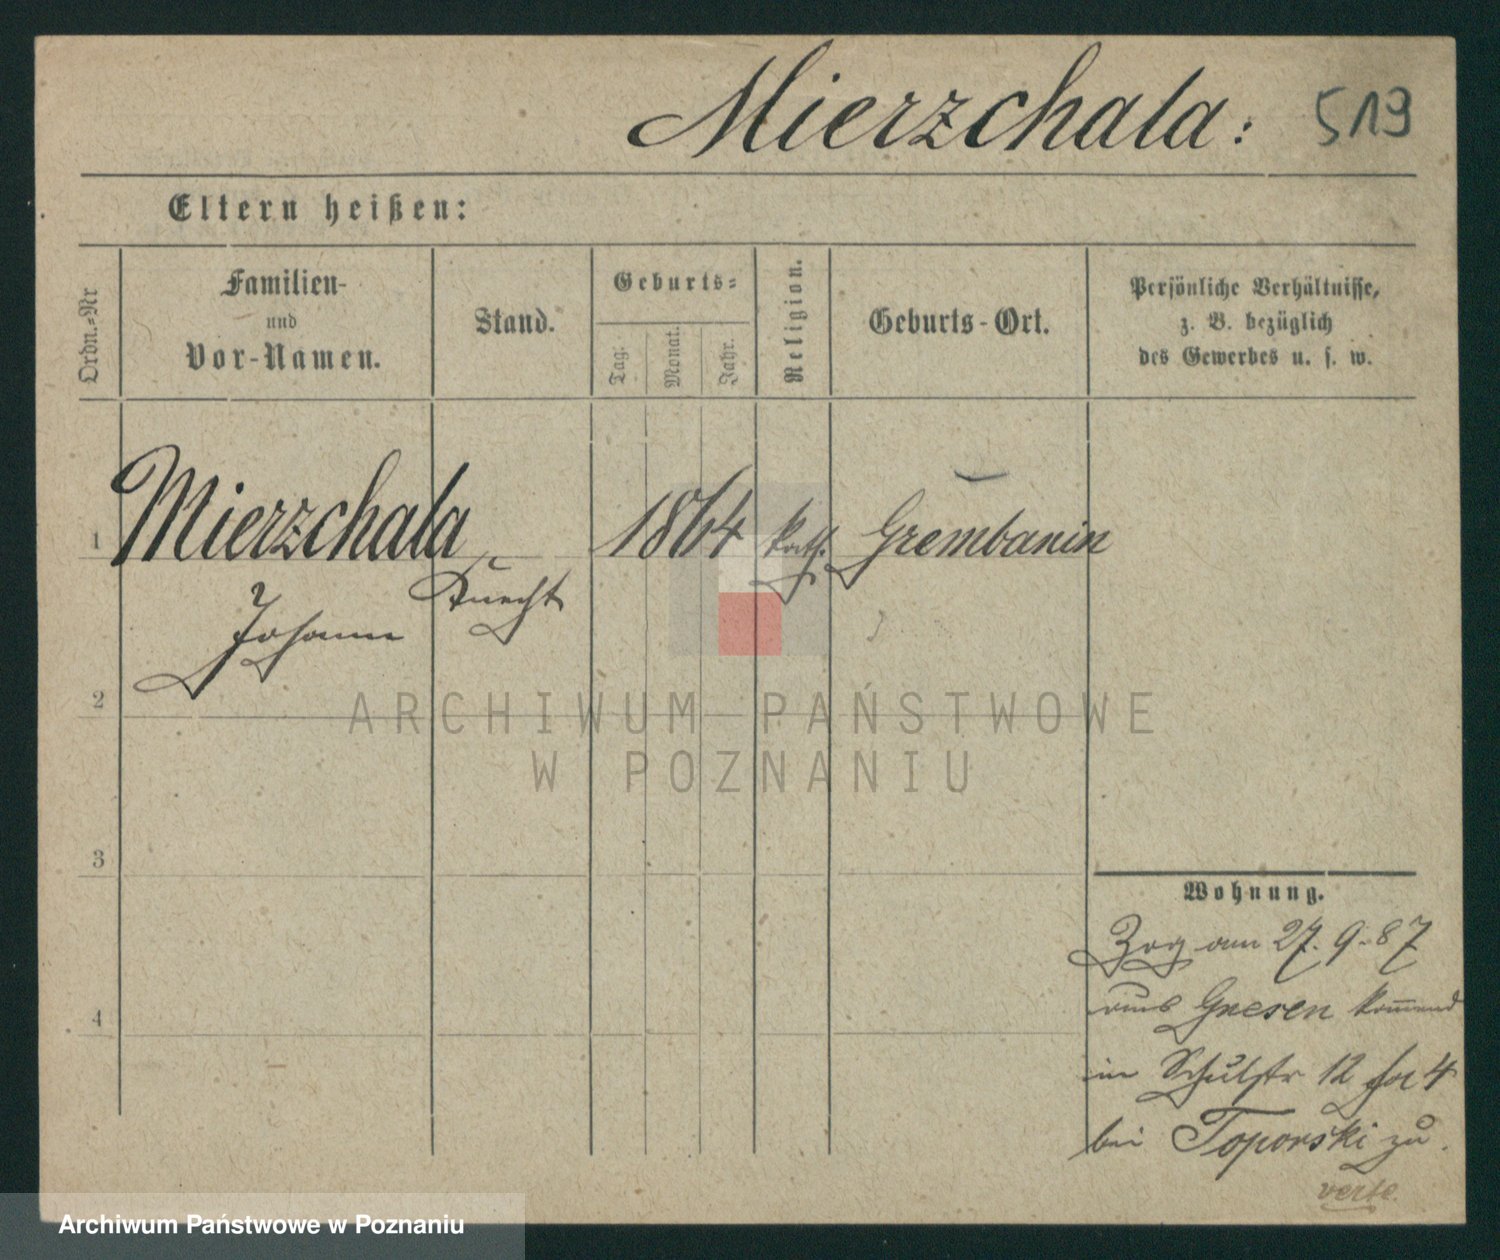 Mierzchala: 519
Eltern heißen:
Ordn.=Nr
Familien-
und
Vor-Namen.
Stand.
Geburts=
Tag.
Monat.
Jahr.
Religion.
Geburts-Ort.
Persönliche Verhältnisse,
z. B. bezüglich
des Gewerbes u. s. w.
1 Mierzchala 1864 kath. Grembanin
Johann Knecht
2
3
4
Wohnung.
Zog am 27. 9. 87
aus Gnesen kommend
in Schulstr 12 4
bei Toporski zu.
verte.
ARCHIWUM PAŃSTWOWE
W POZNANIU
Archiwum Państwowe w Poznaniu